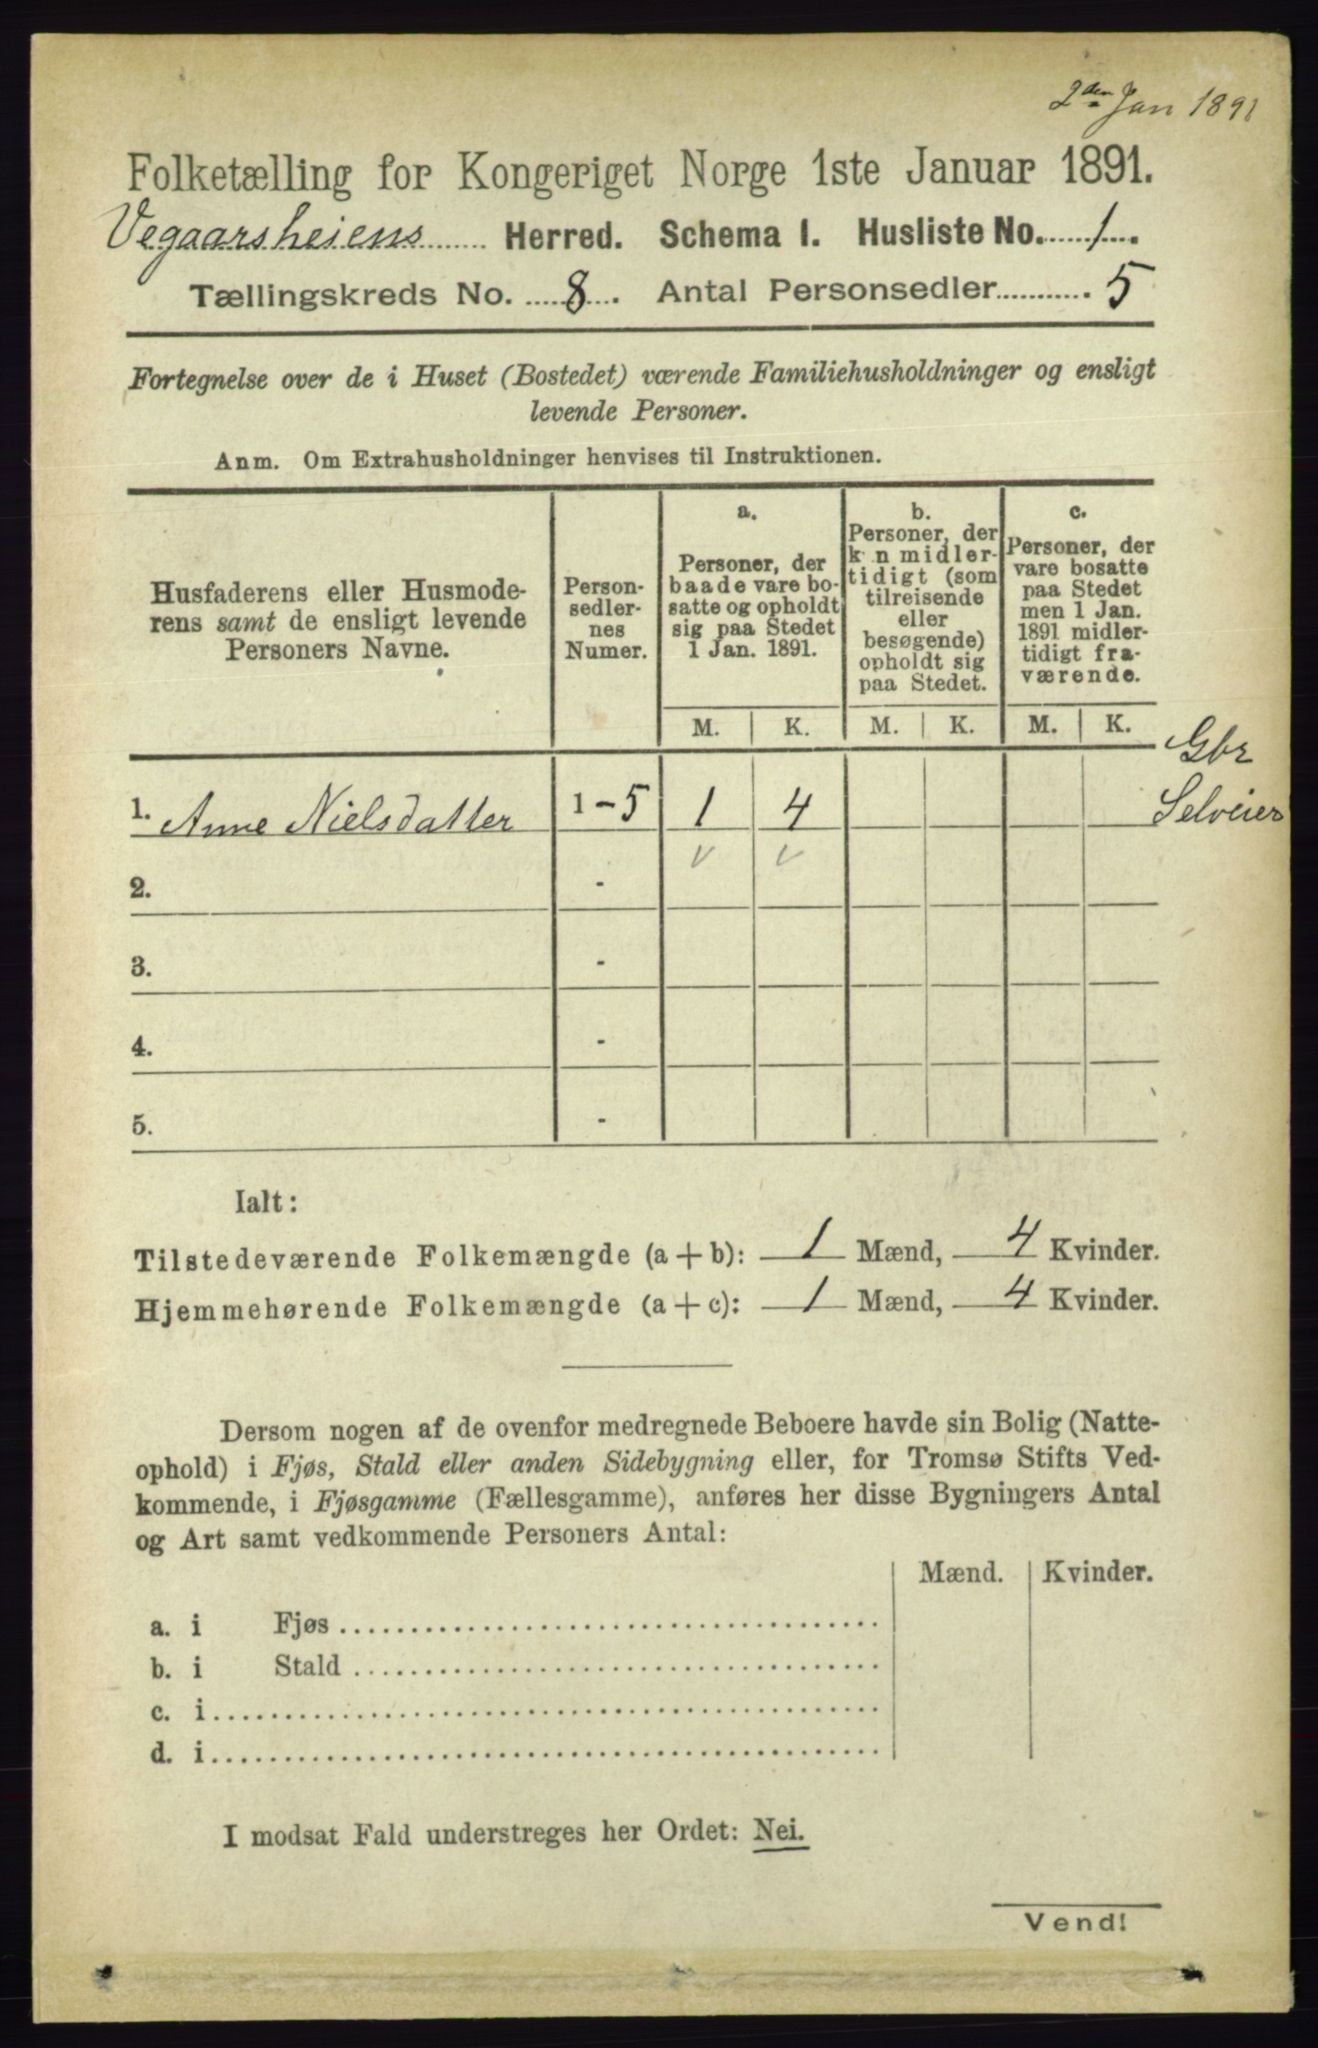 2den Jan 1891
Folketælling for Kongeriget Norge 1ste Januar 1891.
Vegaarsheiens Herred. Schema I. Husliste No. 1.
Tællingskreds No. 8. Antal Personsedler 5
Fortegnelse over de i Huset (Bostedet) værende Familiehusholdninger og ensligt
levende Personer.
Anm. Om Extrahusholdninger henvises til Instruktionen.
Husfaderens eller Husmode-
rens samt de ensligt levende
Personers Navne.
Person-
sedler-
nes
Numer.
a.
Personer, der
baade vare bo-
satte og opholdt
sig paa Stedet
1 Jan. 1891.
b.
Personer, der
k n midler-
tidigt (som
tilreisende
eller
besøgende)
opholdt sig
paa Stedet.
c.
Personer, der
vare bosatte
paa Stedet
men 1 Jan.
1891 midler-
tidigt fra-
værende.
M. K. M. K. M. K.
Gbr
1. Anne Nielsdatter 1 - 5 1 4 Selveier
v v
2. -
3. -
4. -
5. -
Ialt:
Tilstedeværende Folkemængde (a + b): 1 Mænd, 4 Kvinder.
Hjemmehørende Folkemængde (a + c): 1 Mænd, 4 Kvinder.
Dersom nogen af de ovenfor medregnede Beboere havde sin Bolig (Natte-
ophold) i Fjøs, Stald eller anden Sidebygning eller, for Tromsø Stifts Ved-
kommende, i Fjøsgamme (Fællesgamme), anføres her disse Bygningers Antal
og Art samt vedkommende Personers Antal:
Mænd. Kvinder.
a. i Fjøs
b. i Stald
c. i
d. i
I modsat Fald understreges her Ordet: Nei.
Vend!